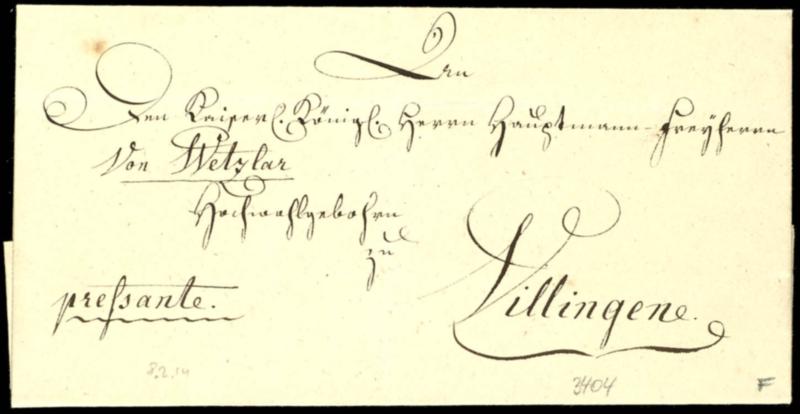 An
Den Kaiserl. Königl. Herrn Hauptmann Freyherrn
Von Wetzlar
Hochwohlgebohrn
zu
presſante.
Villingene.
8.2.14
3404
F